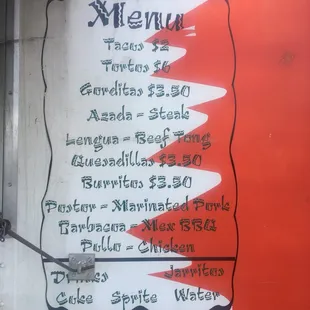 Menu
Tacos $2
Tortas $6
Gorditas $3.50
Azada = Steak
Lengua = Beef Tong
Quesadillas $3.50
Burritos $3.50
Pastor = Marinated Pork
Barbacoa = Mex BBQ
Pollo = Chicken
Drinks Jarritos
Coke Sprite Water